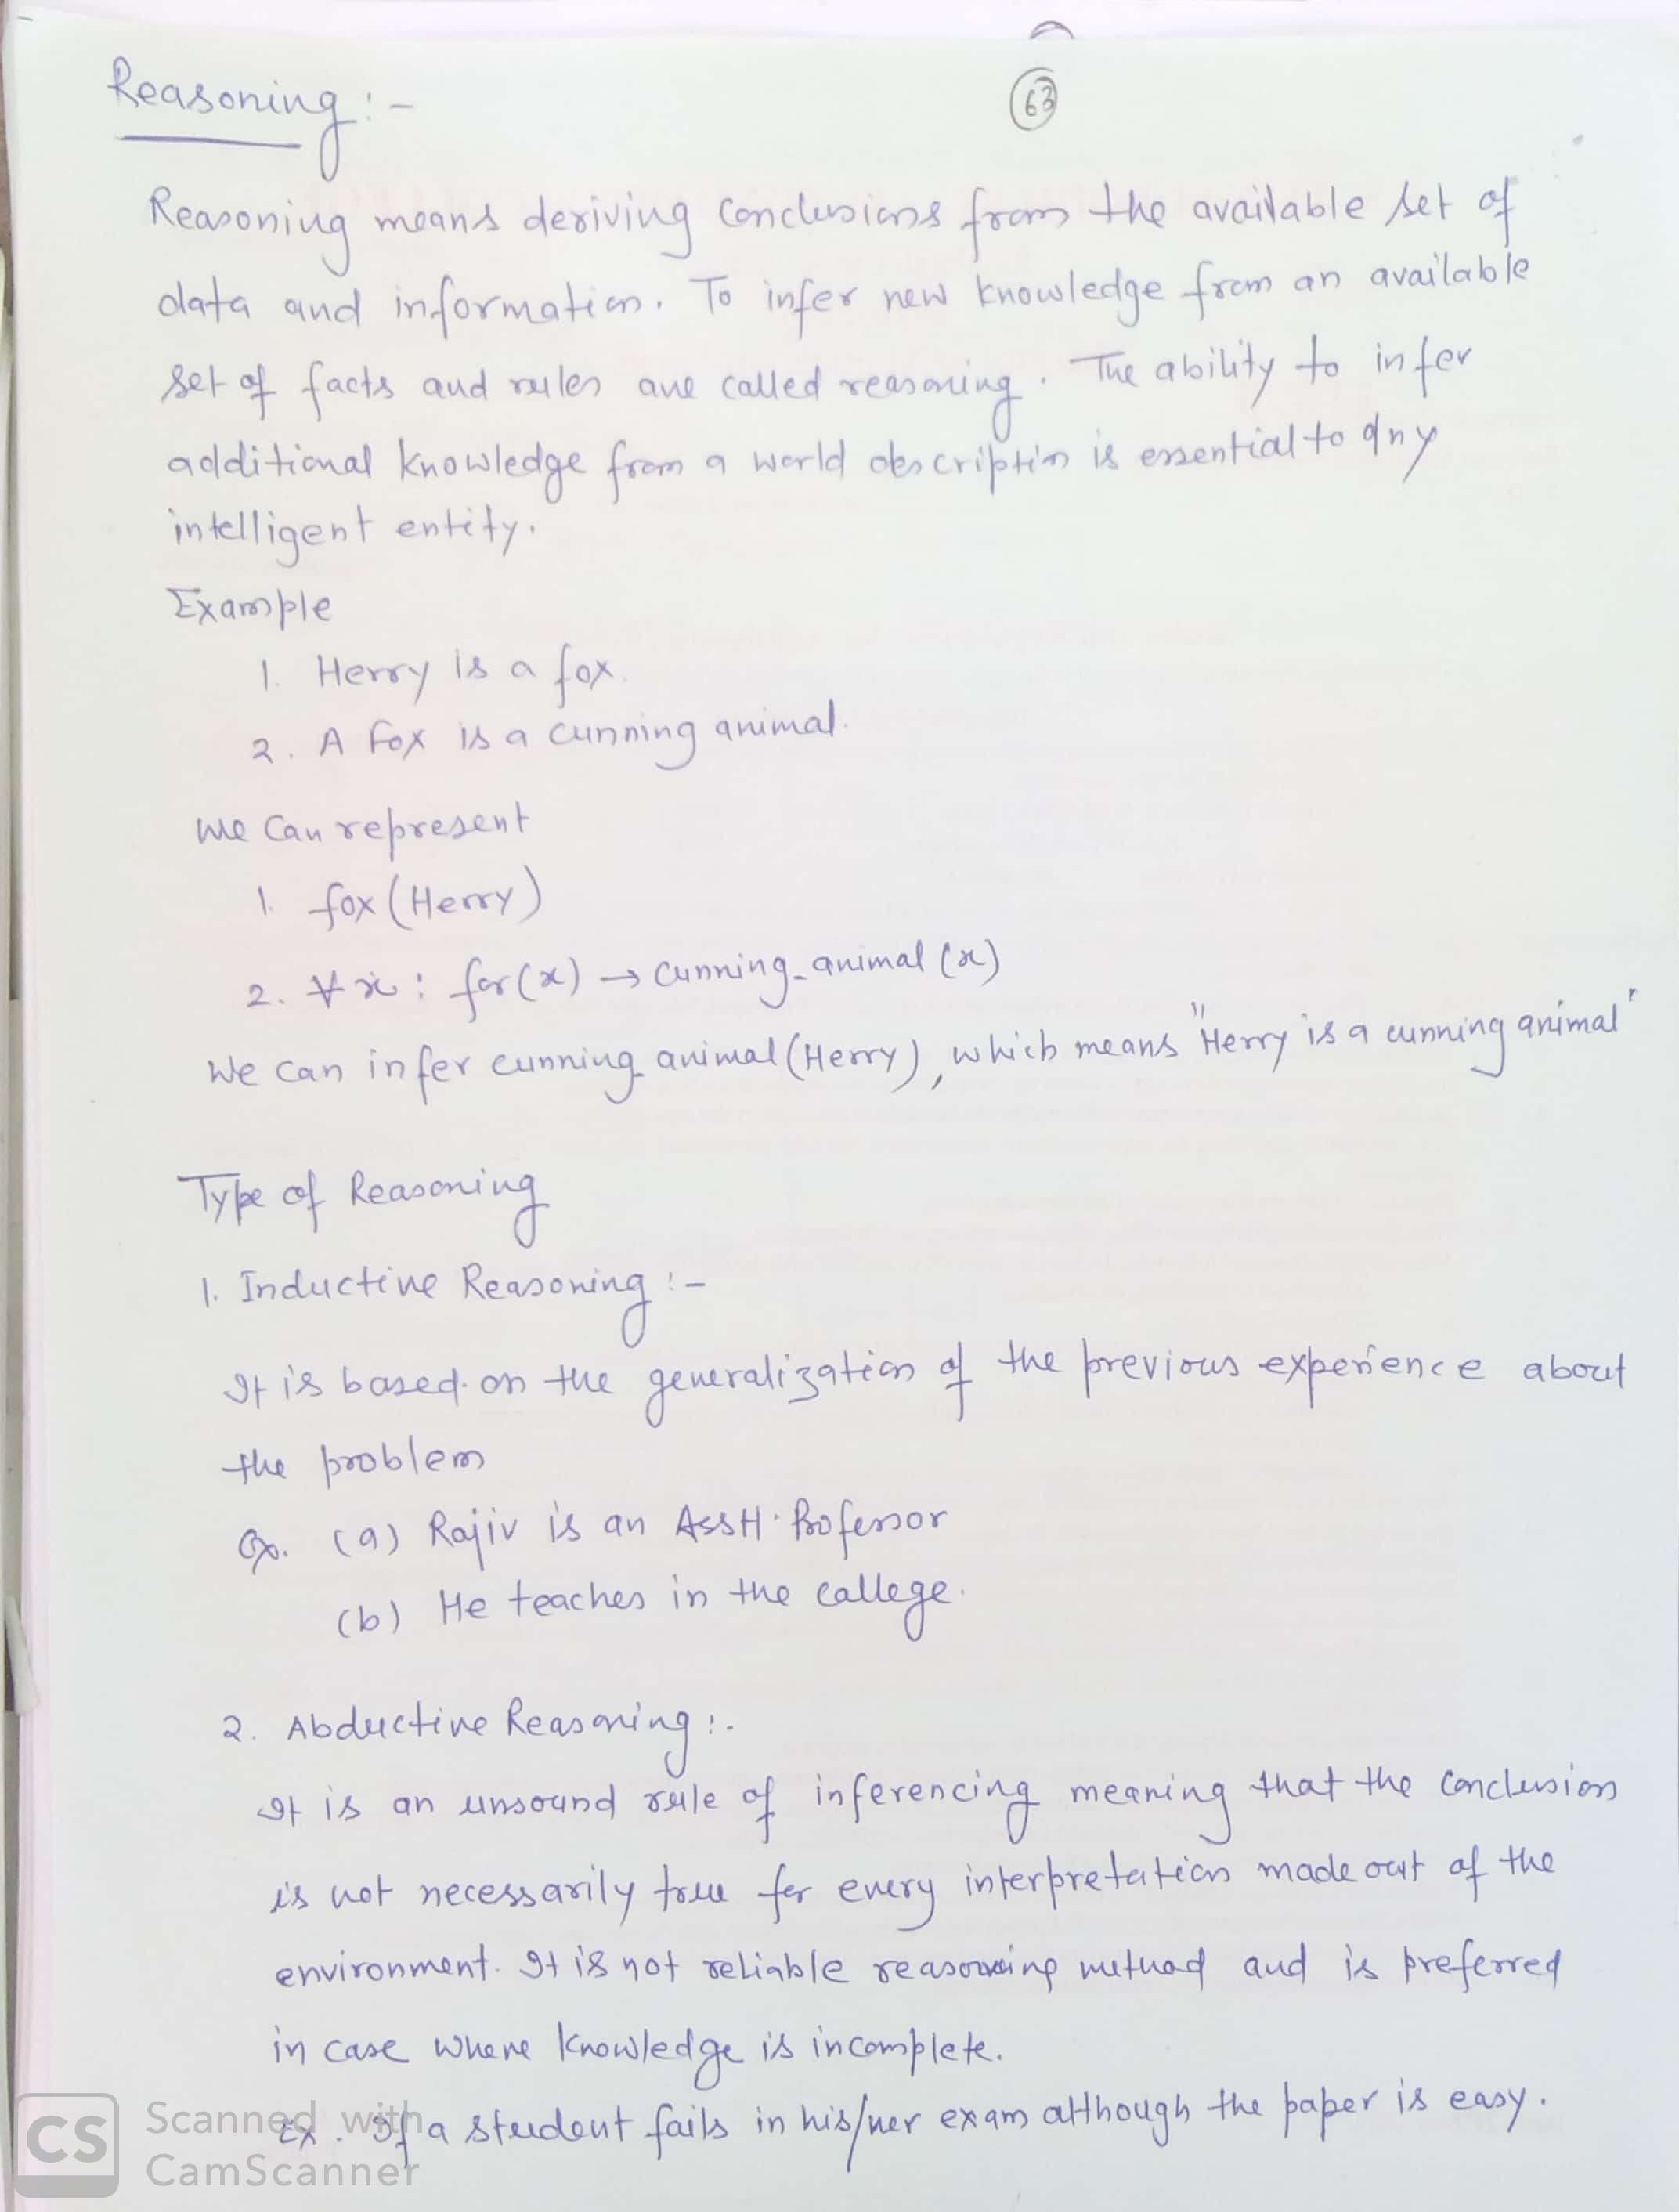 Reasoning :-
63
Reasoning means deriving conclusions from the available set of
data and information. To infer new knowledge from an available
set of facts and rules are called reasoning. The ability to infer
additional knowledge from a world description is essential to any
intelligent entity.
Example
1. Herry is a fox.
2. A fox is a cunning animal.
We can represent
1. fox (Herry)
2. ∀x : for(x) → cunning_animal (x)
We can infer cunning animal (Herry), which means "Herry is a cunning animal"
Type of Reasoning
1. Inductive Reasoning :-
It is based on the generalization of the previous experience about
the problem
Ex. (a) Rajiv is an Asstt. Professor
(b) He teaches in the college.
2. Abductive Reasoning :-
It is an unsound rule of inferencing meaning that the conclusion
is not necessarily true for every interpretation made out of the
environment. It is not reliable reasoning method and is preferred
in case where knowledge is incomplete.
Ex. If a student fails in his/her exam although the paper is easy.
CS Scanned with
CamScanner